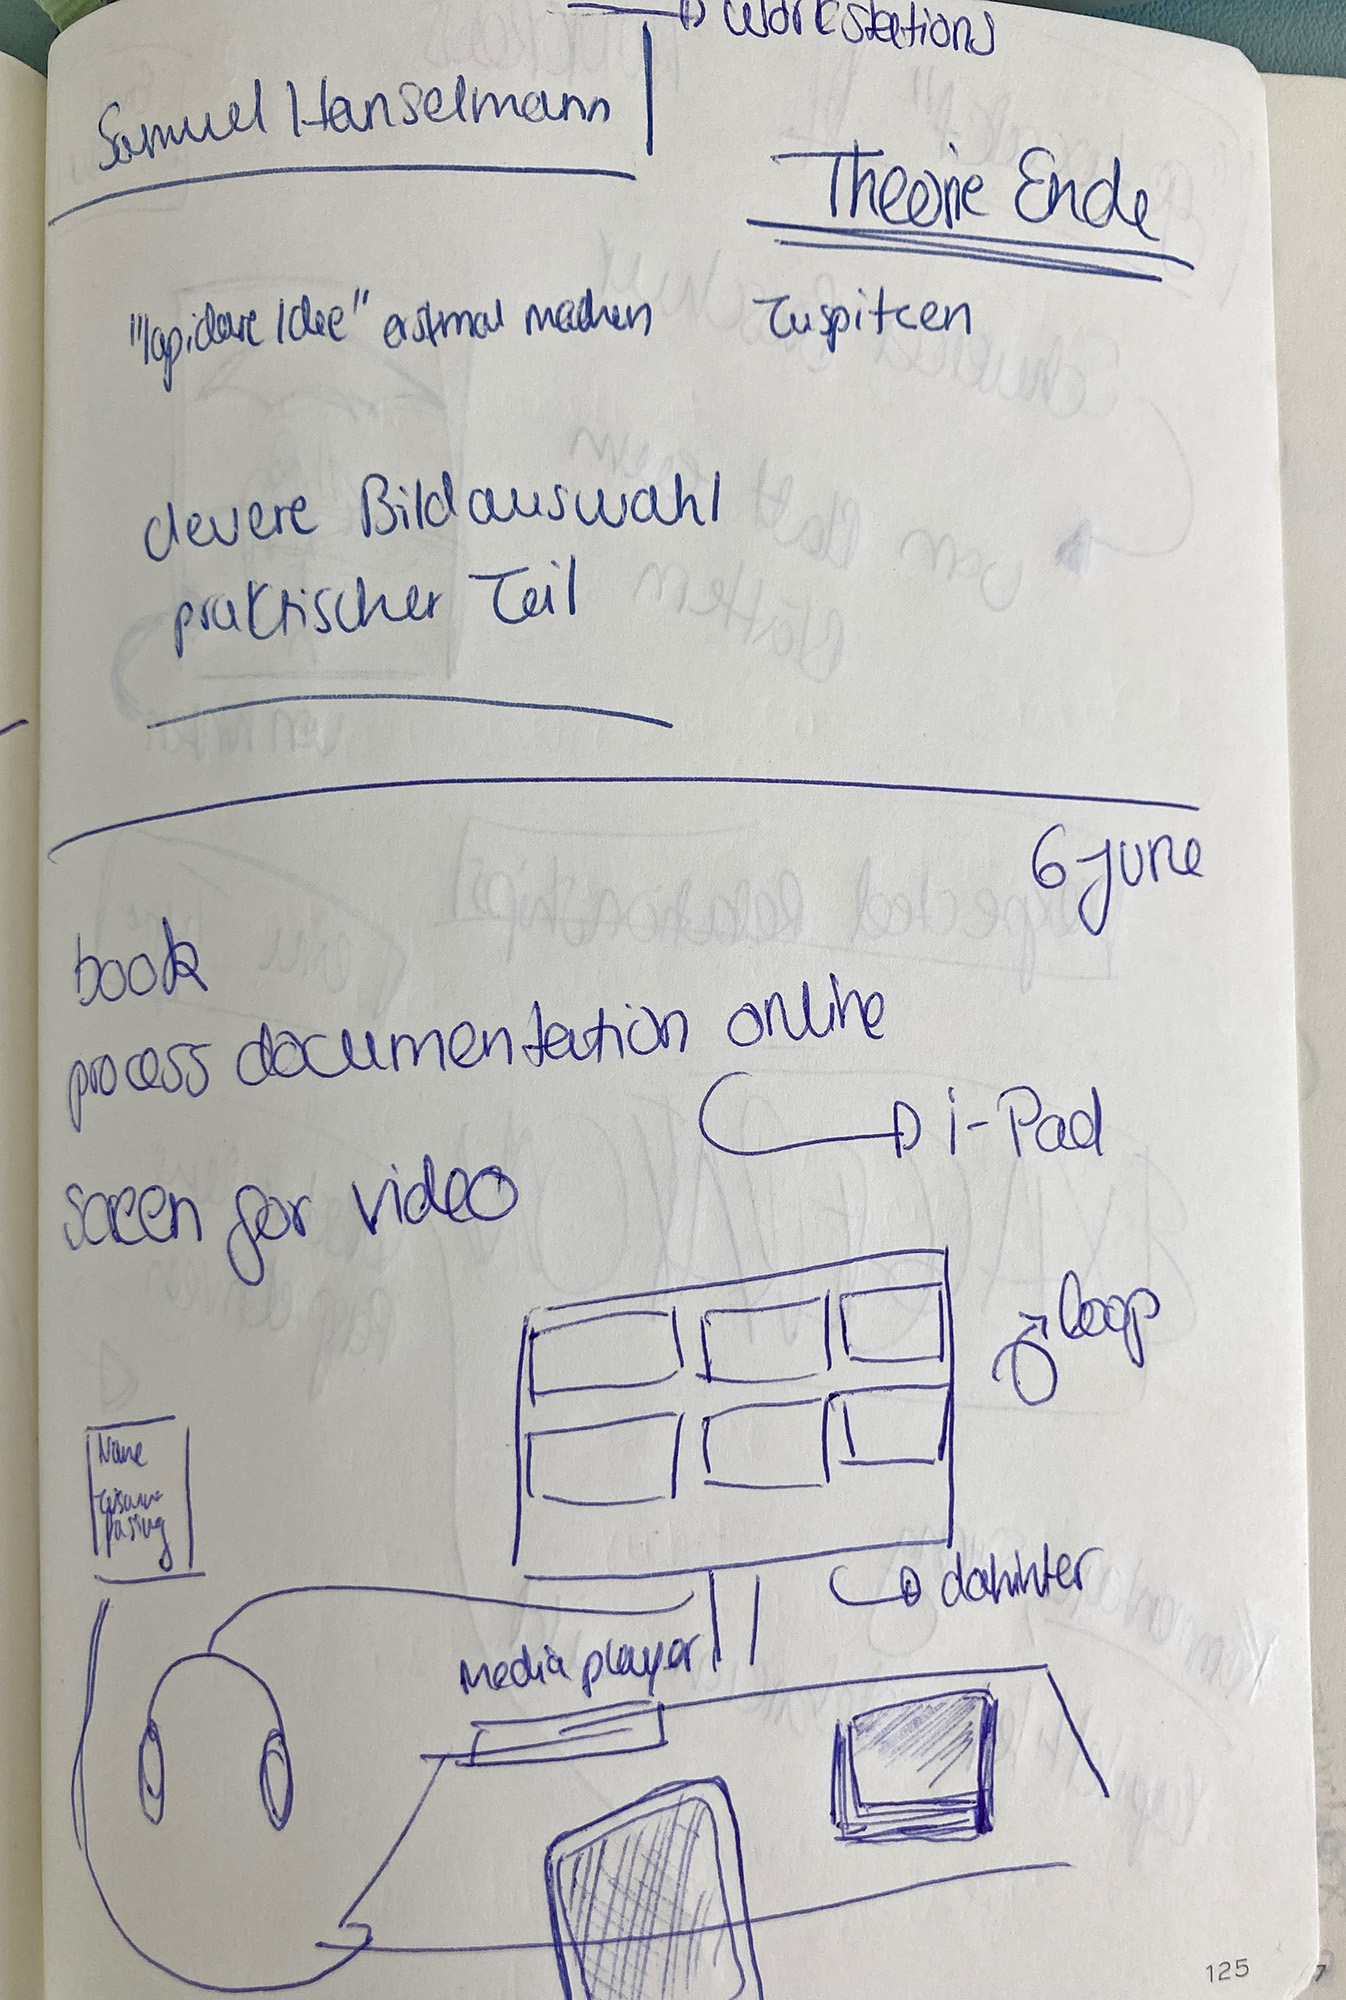 workstations
Samuel Hanselmann
Theorie Ende
"lapidare Idee" erstmal machen
Zuspitzen
clevere Bildauswahl
praktischer Teil
6 june
book
process documentation online
i-Pad
screen for video
loop
Name
dahinter
Media player
125